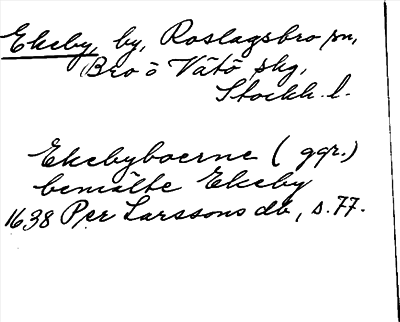 Ekeby, by, Roslagsbro sn,
Bro o Vätö skg,
Stockh. l.
Ekebyboerne (ggr.)
bemälte Ekeby
1638 Per Larssons db, s. 77.